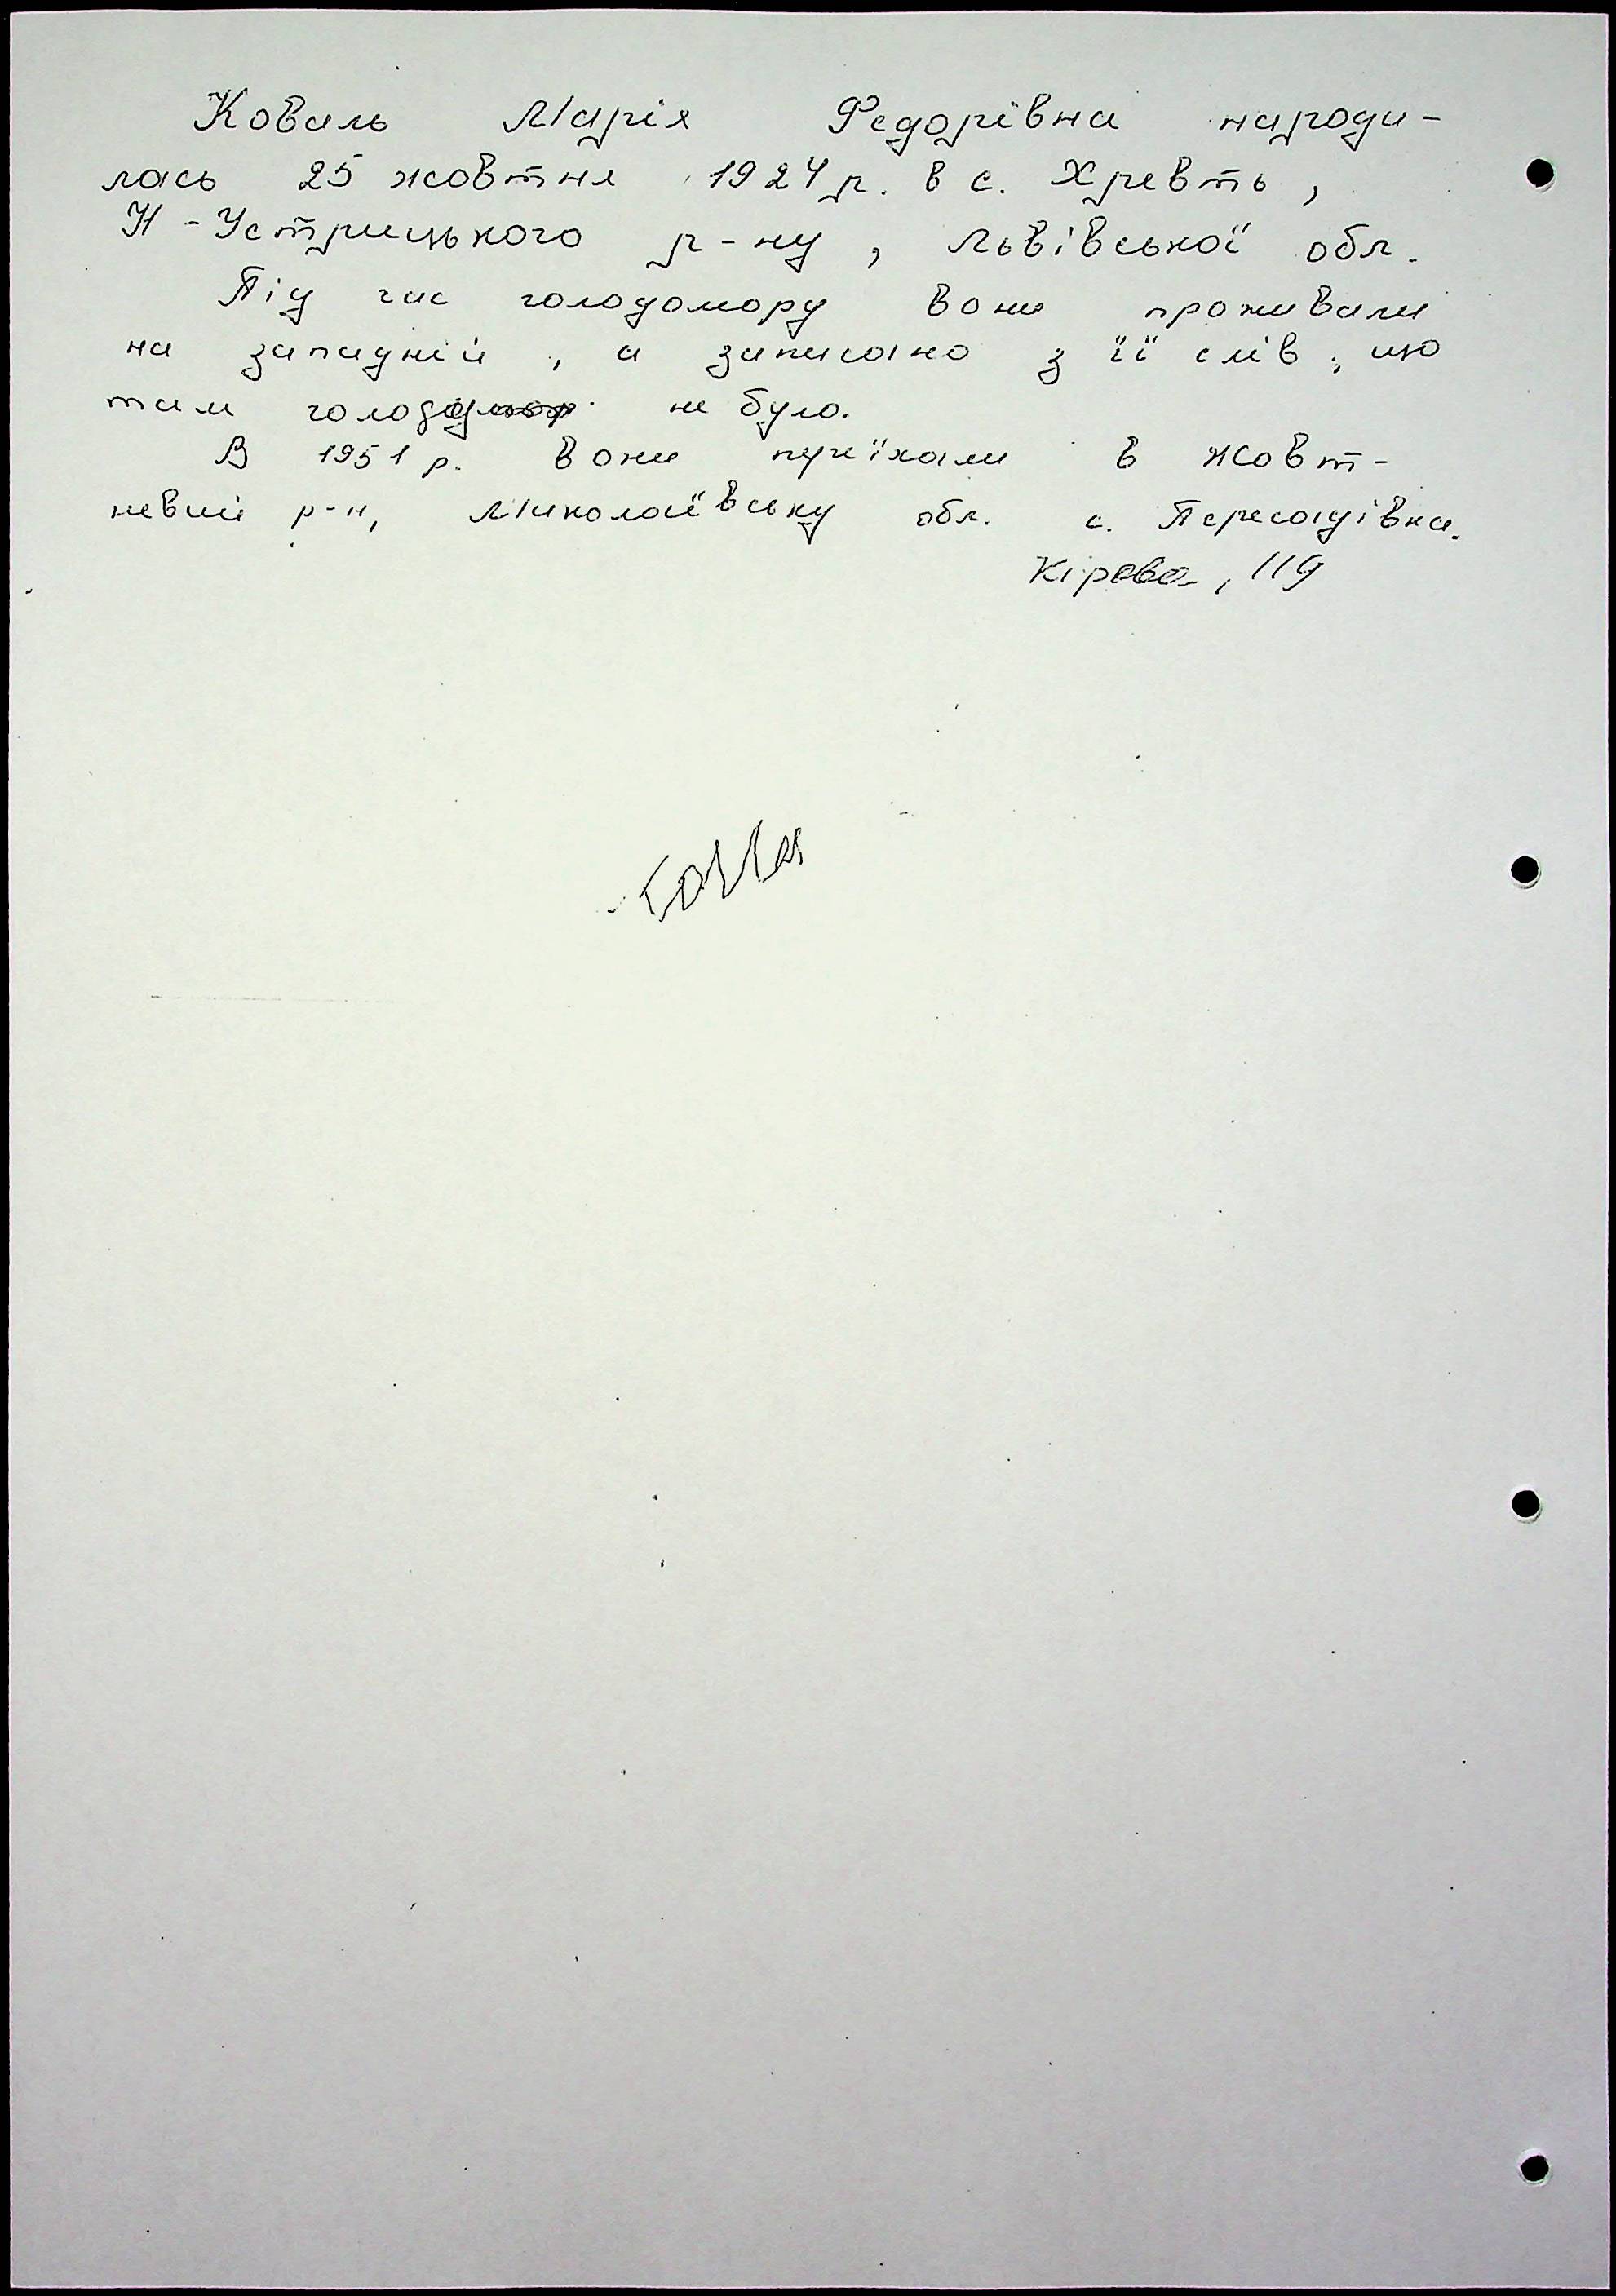 Коваль Марія Федорівна народи-
лась 25 жовтня 1924 р. в с. Хревть,
Н-Устрицького р-ну, Львівської обл.
Під час голодомору вони проживали
на западній, а записано з її слів, що
там голоду не було.
В 1951 р. вони переїхали в Жовт-
невий р-н, Миколаївську обл. с. Пересадівка.
Кірова, 119